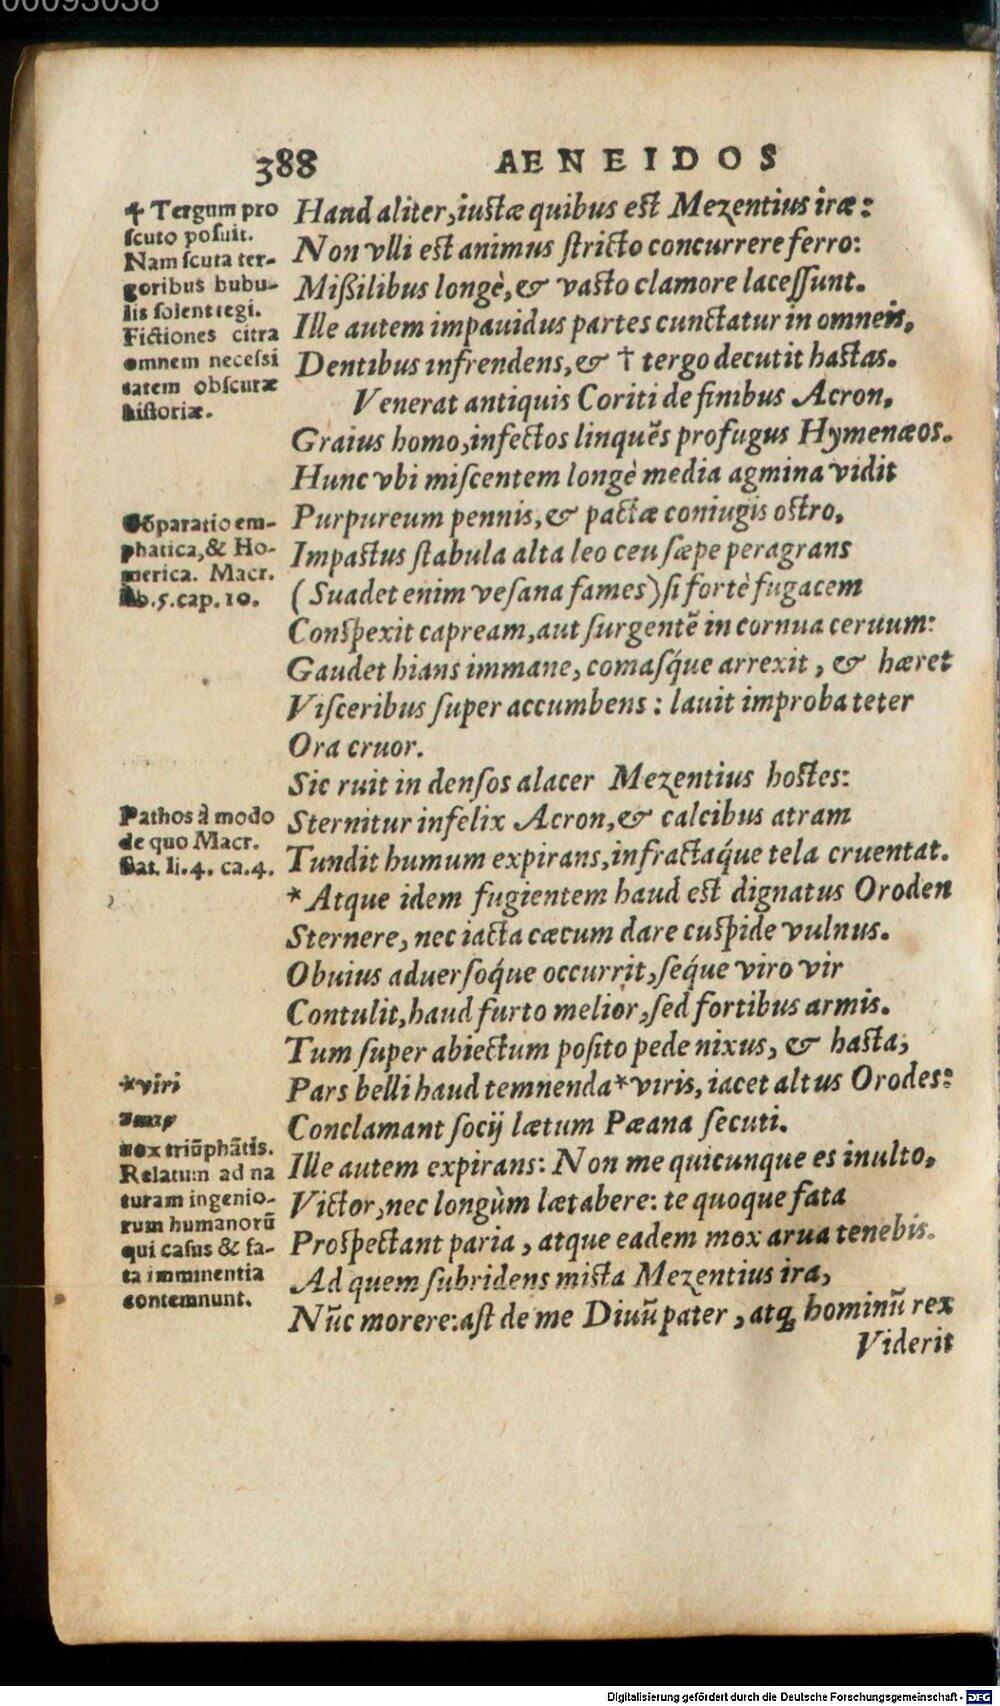 00093038
388 AENEIDOS
Haud aliter, iustæ quibus est Mezentius iræ:
Non vlli est animus ſtricto concurrere ferro:
Mißilibus longè, & vasto clamore laceſſunt.
Ille autem impauidus partes cunctatur in omneis,
Dentibus infrendens, & † tergo decutit hastas.
Venerat antiquis Coriti de finibus Acron,
Graius homo, infectos linquẽs profugus Hymenæos.
Hunc vbi miſcentem longè media agmina vidit
Purpureum pennis, & pactæ coniugis ostro,
Impastus ſtabula alta leo ceu ſæpe peragrans
(Suadet enim veſana fames) ſi fortè fugacem
Conſpexit capream, aut ſurgentẽ in cornua ceruum:
Gaudet hians immane, comaſq́ue arrexit, & hæret
Viſceribus ſuper accumbens: lauit improba teter
Ora cruor.
Sic ruit in denſos alacer Mezentius hostes:
Sternitur infelix Acron, & calcibus atram
Tundit humum expirans, infractaq́ue tela cruentat.
* Atque idem fugientem haud est dignatus Oroden
Sternere, nec iacta cæcum dare cuſpide vulnus.
Obuius aduerſoq́ue occurrit, ſeq́ue viro vir
Contulit, haud furto melior, ſed fortibus armis.
Tum ſuper abiectum poſito pede nixus, & hasta,
Pars belli haud temnenda * viris, iacet altus Orodes:
Conclamant ſocij lætum Pæana ſecuti.
Ille autem expirans: Non me quicunque es inulto,
Victor, nec longùm lætabere: te quoque fata
Proſpectant paria, atque eadem mox arua tenebis.
Ad quem ſubridens mista Mezentius ira,
Nũc morere: aſt de me Diuũ pater, atqꝫ hominũ rex
Viderit
† Tergum pro
ſcuto poſuit.
Nam ſcuta ter-
goribus bubu-
lis ſolent tegi.
Fictiones citra
omnem neceſsi
tatem obſcuræ
hiſtoriæ.
Cõparatio em-
phatica, & Ho-
merica. Macr.
lib. 5. cap. 10.
Pathos à modo
de quo Macr.
Sat. li. 4. ca. 4.
* viri
vox triũphãtis.
Relatum ad na
turam ingenio-
rum humanorũ
qui caſus & fa-
ta imminentia
contemnunt.
Digitalisierung gefördert durch die Deutsche Forschungsgemeinschaft - DFG